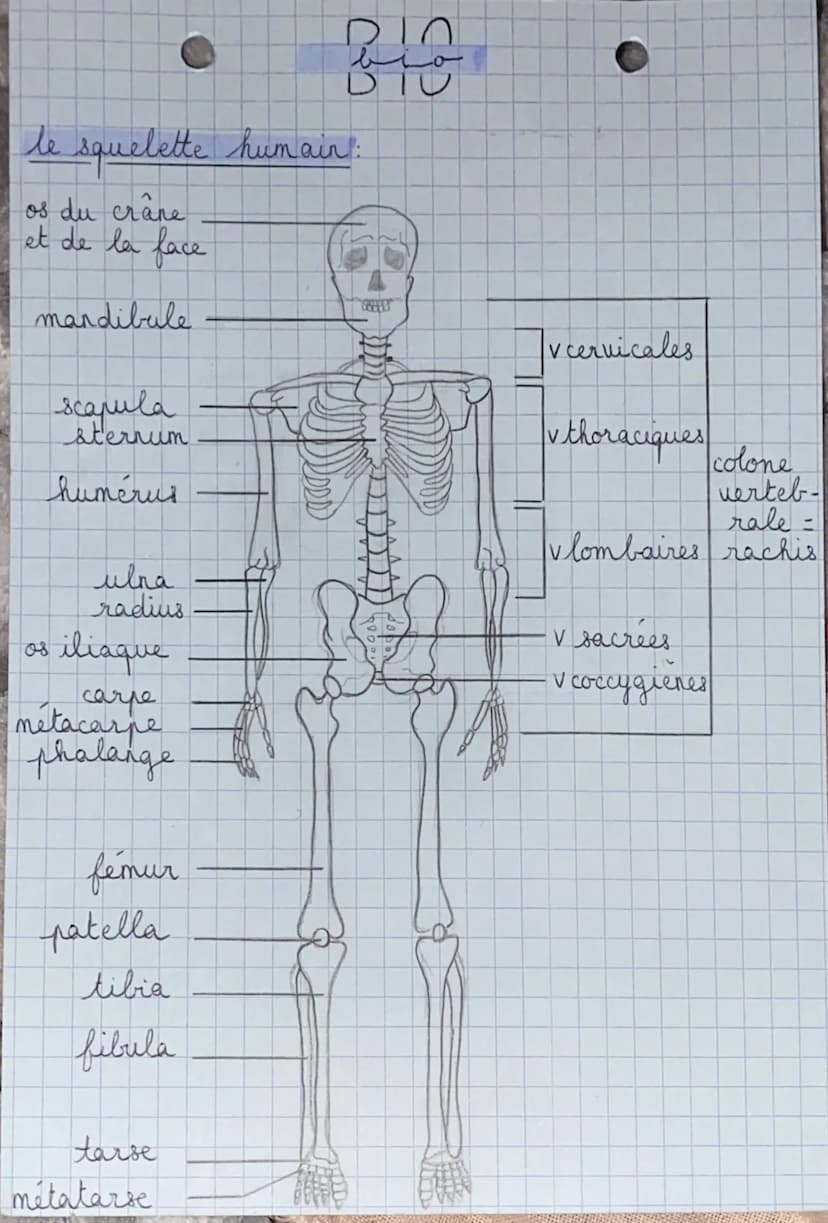 BIO
bio
le squelette humain:
os du crâne
et de la face
mandibule
scapula
sternum
humérus
ulna
radius
os iliaque
carpe
métacarpe
phalange
fémur
patella
tibia
fibula
tarse
métatarse
v cervicales
v thoraciques
v lombaires
v sacrées
v coccygiènes
colone
verteb-
rale =
rachis